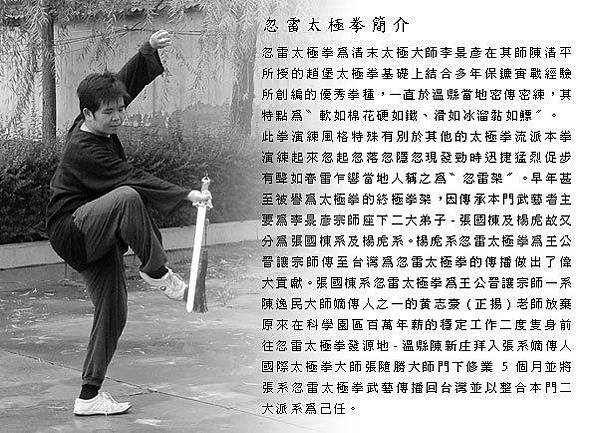 忽雷太極拳簡介
忽雷太極拳爲清末太極大師李景彥在其師陳清平
所授的趙堡太極拳基礎上結合多年保鑣實戰經驗
所創編的優秀拳種，一直於溫縣當地密傳密練，其
特點爲〝軟如棉花硬如鐵、滑如冰溜黏如鰾〞。
此拳演練風格特殊有別於其他的太極拳流派本拳
演練起來忽起忽落忽隱忽現發勁時迅捷猛烈促步
有聲如春雷乍響當地人稱之爲〝忽雷架〞。早年甚
至被譽爲太極拳的終極拳架，因傳承本門武藝者主
要爲李景彥宗師座下二大弟子-張國棟及楊虎故又
分爲張國棟系及楊虎系。楊虎系忽雷太極拳爲王公
晉讓宗師傳至台灣爲忽雷太極拳的傳播做出了偉
大貢獻。張國棟系忽雷太極拳爲王公晉讓宗師一系
陳逸民大師嫡傳人之一的黃志豪(正揚)老師放棄
原來在科學園區百萬年薪的穩定工作二度隻身前
往忽雷太極拳發源地-溫縣陳新庄拜入張系嫡傳人
國際太極拳大師張隨勝大師門下修業 5 個月並將
張系忽雷太極拳武藝傳播回台灣並以整合本門二
大派系爲己任。